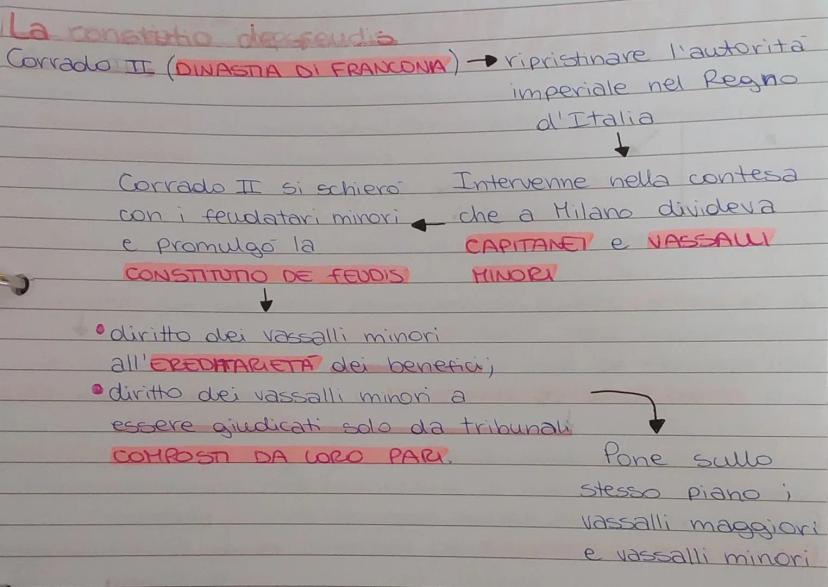 La constitutio de feudis
Corrado II (DINASTIA DI FRANCONIA) → ripristinare l'autorità
imperiale nel Regno
d'Italia
Intervenne nella contesa
che a Milano divideva
CAPITANEI e VASSALLI
MINORI
Corrado II si schierò
con i feudatari minori
e promulgò la
CONSTITUTIO DE FEUDIS
• diritto dei vassalli minori
all'EREDITARIETÀ dei benefici;
• diritto dei vassalli minori a
essere giudicati solo da tribunali
COMPOSTI DA LORO PARI.
Pone sullo
stesso piano i
vassalli maggiori
e vassalli minori